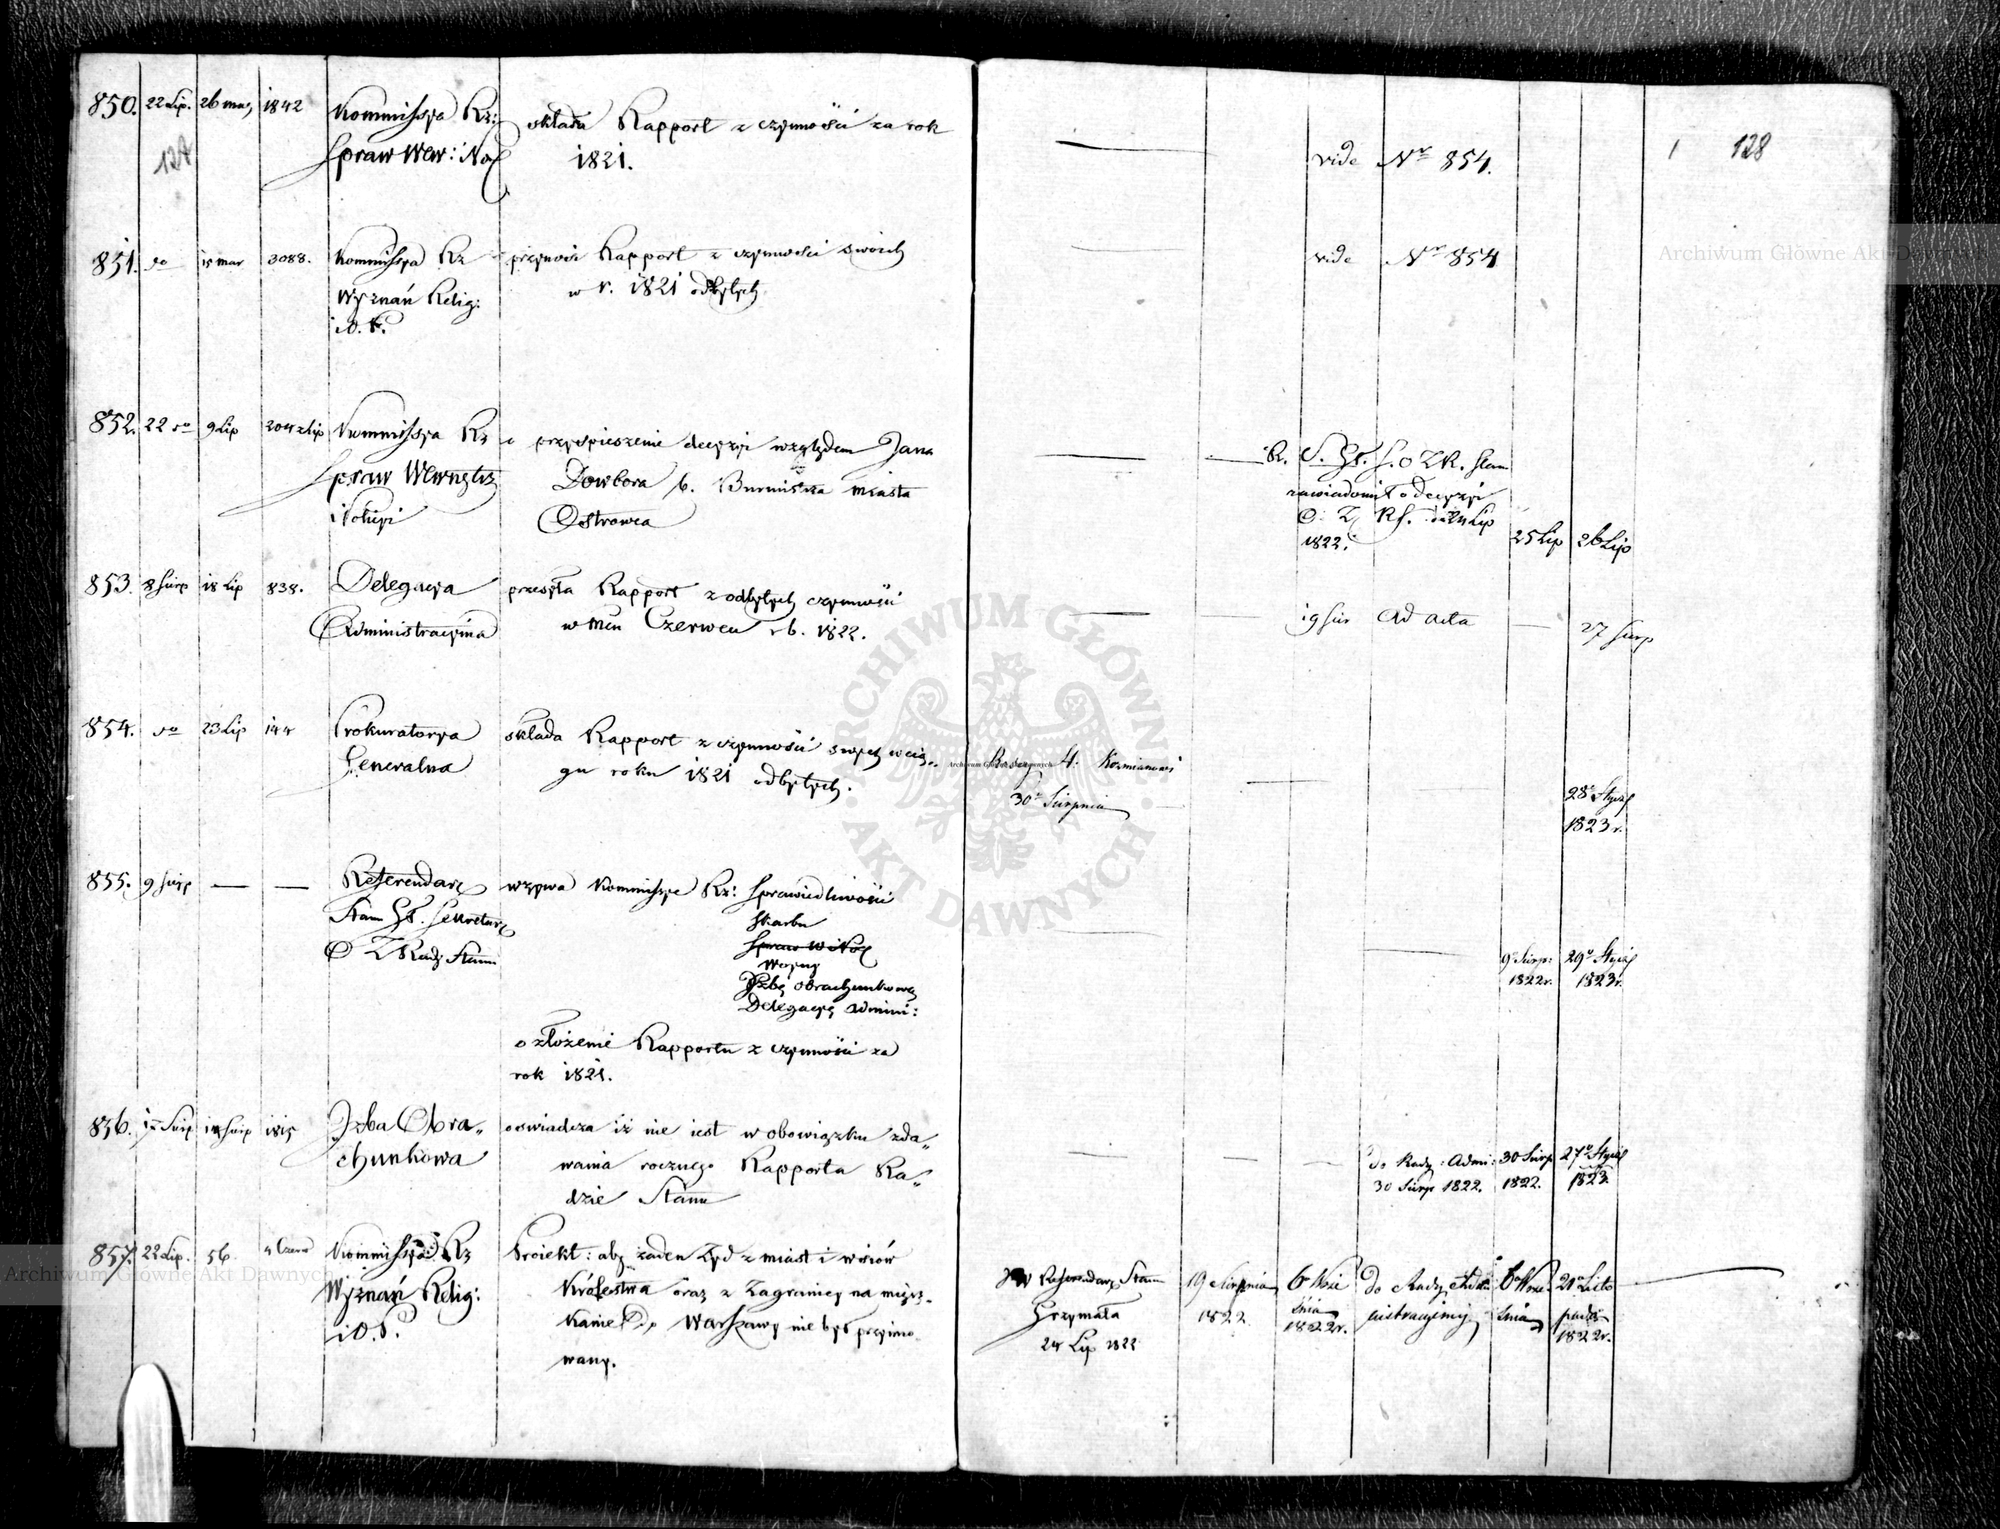 850. 22 Lip. 26 maj 1842 Kommissya Rz: składa Rapport z czynności za rok
Spraw Wew: i Pol 1821.
vide Nr 854.
128
851. do 15 mar 3088. Kommissya Rz przynosi Rapport z czynności swoich
Wyznań Relig: w r. 1821 odbytych
i O. P.
vide Nr 854
852. 22 do 9 Lip Kommissya Rz o przyspieszenie decyzyi względem Jana
Spraw Wewnętrz Dowbora b. Burmistrza miasta
i Policyi Ostrowca
zawiadomił o decyzyi
1822. 25 Lip 26 Lip
853. 8 Sierp 18 Lip 838. Delegacya przesyła Rapport z odbytych czynności
Administracyina w mcu Czerwcu r. b. 1822.
19 Sier Ad acta 27 Sierp
854. do 23 Lip 144 Prokuratorya składa Rapport z czynności swych w cią„
Generalna gu roku 1821 odbytych.
Koźmianowi
30o Sierpnia
28o Stycz
1823 r.
855. 9 Sierp Referendarz wzywa Kommissye Rz: Sprawiedliwości
Stanu Zs. Sekretarz Skarbu
O Z Rady Stanu Spraw W i Pol
Woyny
Izbę obrachunkową
Delegacyę Admini:
o złożenie Rapportu z czynności za
rok 1821.
9o Sierp: 29o Stycz
1822 r. 1823 r.
856. 12 Sierp 12 Sierp 1815 Izba Obra„ oświadcza iż nie iest w obowiązku zda„
chunkowa wania rocznego Rapportu Ra„
dzie Stanu
do Rady Admi: 30 Sierp 27o Stycz
30 Sierp 1822. 1822. 1823.
857. 22 Lip. 56 4 Czerw Kommissya Rz Proiekt: aby żaden Żyd z miast i wsiów
Wyznań Relig: Królestwa oraz z Zagranicy na miesz„
i O. P. kanie do Warszawy nie był przyimo„
wany.
JW Referendarz Stanu 19 Sierpnia 6o Wrze do Rady Admi 6o Wrze 21o Listo
Grzymała 1822 śnia nistracyjnej śnia pada
24 Lip 1822 1822 r. 1822 r.
ARCHIWUM GŁÓWNE AKT DAWNYCH
Archiwum Główne Akt Dawnych
Archiwum Główne Akt Dawnych
Archiwum Główne Akt Dawnych